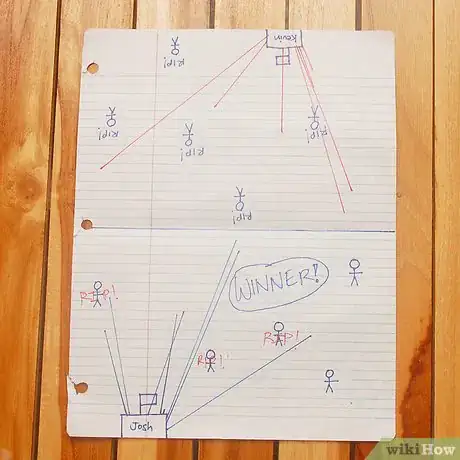 Kevin
RIP!
RIP!
RIP!
RIP!
RIP!
WINNER!
RIP!
RIP!
RIP!
Josh
wikiHow